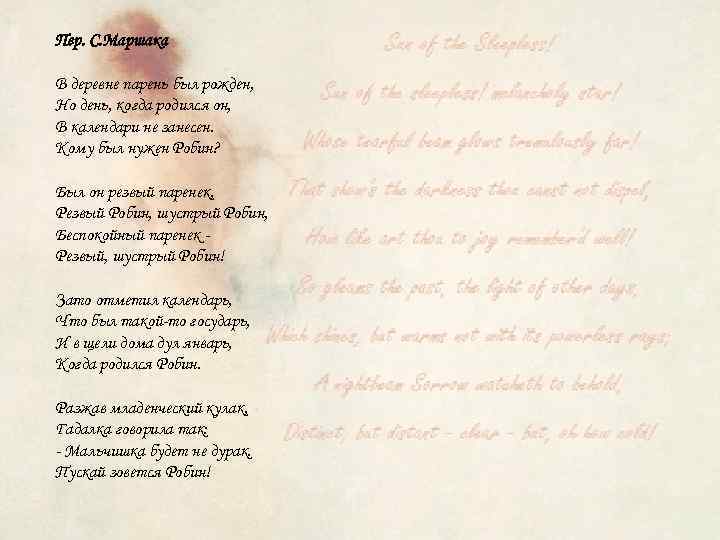 Пер. С.Маршака
В деревне парень был рожден,
Но день, когда родился он,
В календари не занесен.
Кому был нужен Робин?
Был он резвый паренек,
Резвый Робин, шустрый Робин,
Беспокойный паренек -
Резвый, шустрый Робин!
Зато отметил календарь,
Что был такой-то государь,
И в щели дома дул январь,
Когда родился Робин.
Разжав младенческий кулак,
Гадалка говорила так:
- Мальчишка будет не дурак.
Пускай зовется Робин!
Sun of the Sleepless!
Sun of the sleepless! melancholy star!
Whose tearful beam glows tremulously far!
That show's the darkness thou canst not dispel,
How like art thou to joy remember'd well!
So gleams the past, the light of other days,
Which shines, but warms not with its powerless rays;
A nightbeam Sorrow watcheth to behold,
Distinct, but distant - clear - but, oh how cold!